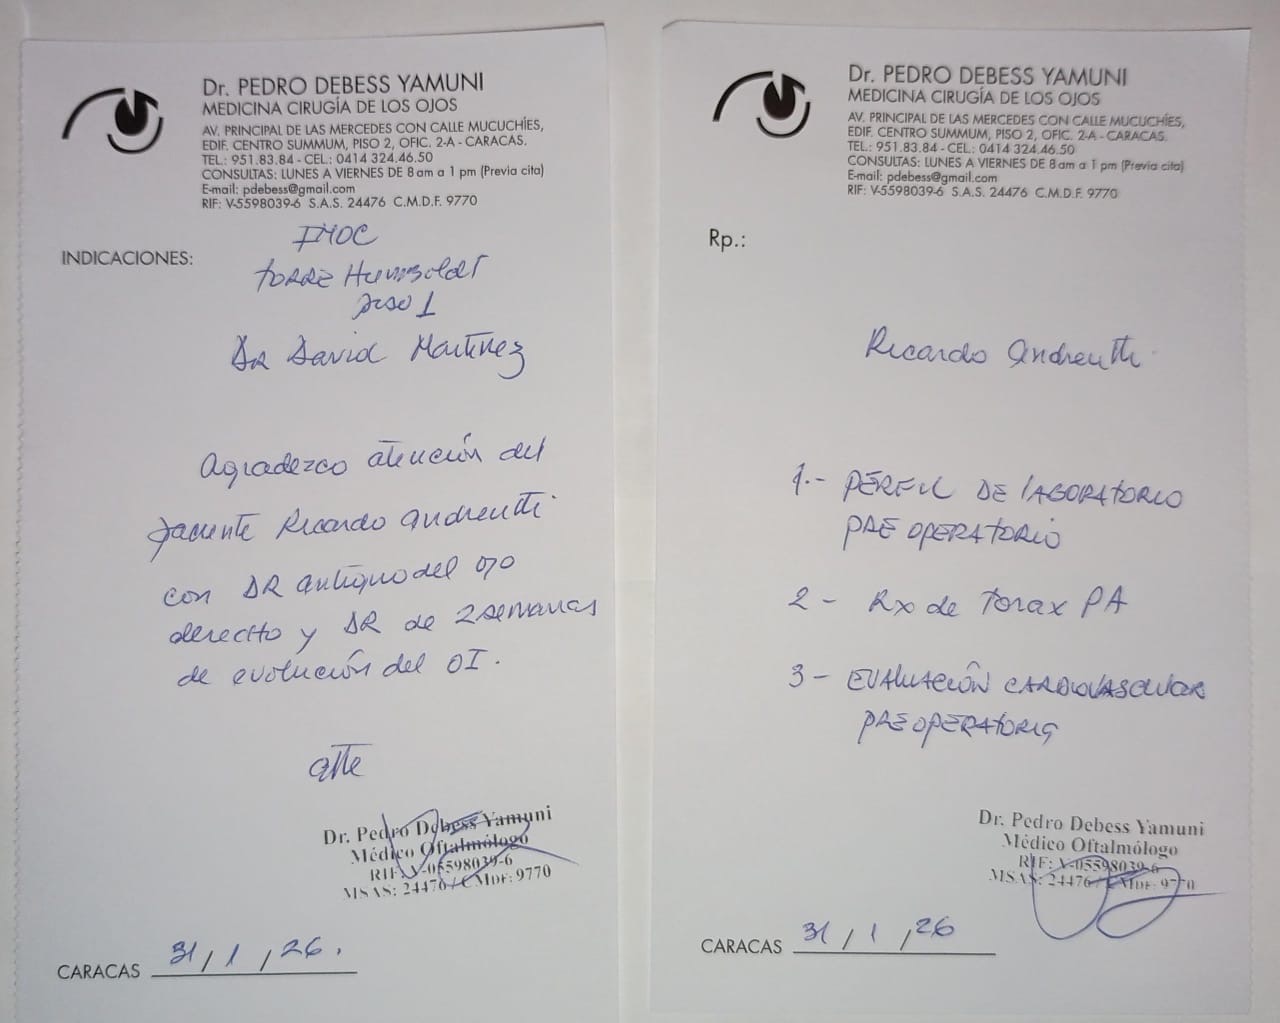 Dr. PEDRO DEBESS YAMUNI
MEDICINA CIRUGÍA DE LOS OJOS
AV. PRINCIPAL DE LAS MERCEDES CON CALLE MUCUCHÍES,
EDIF. CENTRO SUMMUM, PISO 2, OFIC. 2-A - CARACAS.
TEL.: 951.83.84 - CEL.: 0414 324.46.50
CONSULTAS: LUNES A VIERNES DE 8 am a 1 pm (Previa cita)
E-mail: pdebess@gmail.com
RIF: V-5598039-6 S.A.S. 24476 C.M.D.F. 9770
INDICACIONES:
IMOC
Torre Humboldt
piso 1
DR David Martinez
Agradezco atención del
paciente Ricardo Andreutti
con DR antiguo del ojo
derecho y DR de 2 semanas
de evolución del OI.
Atte
Dr. Pedro Debess Yamuni
Médico Oftalmólogo
RIF: V-05598039-6
MSAS: 24476 / CMDF: 9770
CARACAS 31 / 1 / 26.
Dr. PEDRO DEBESS YAMUNI
MEDICINA CIRUGÍA DE LOS OJOS
AV. PRINCIPAL DE LAS MERCEDES CON CALLE MUCUCHÍES,
EDIF. CENTRO SUMMUM, PISO 2, OFIC. 2-A - CARACAS.
TEL.: 951.83.84 - CEL.: 0414 324.46.50
CONSULTAS: LUNES A VIERNES DE 8 am a 1 pm (Previa cita)
E-mail: pdebess@gmail.com
RIF: V-5598039-6 S.A.S. 24476 C.M.D.F. 9770
Rp.:
Ricardo Andreutti
1.- PERFIL DE LABORATORIO
PREOPERATORIO
2 - Rx de Torax PA
3 - EVALUACIÓN CARDIOVASCULAR
PREOPERATORIA
Dr. Pedro Debess Yamuni
Médico Oftalmólogo
RIF: V-05598039-6
MSAS: 24476 / CMDF: 9770
CARACAS 31 / 1 / 26